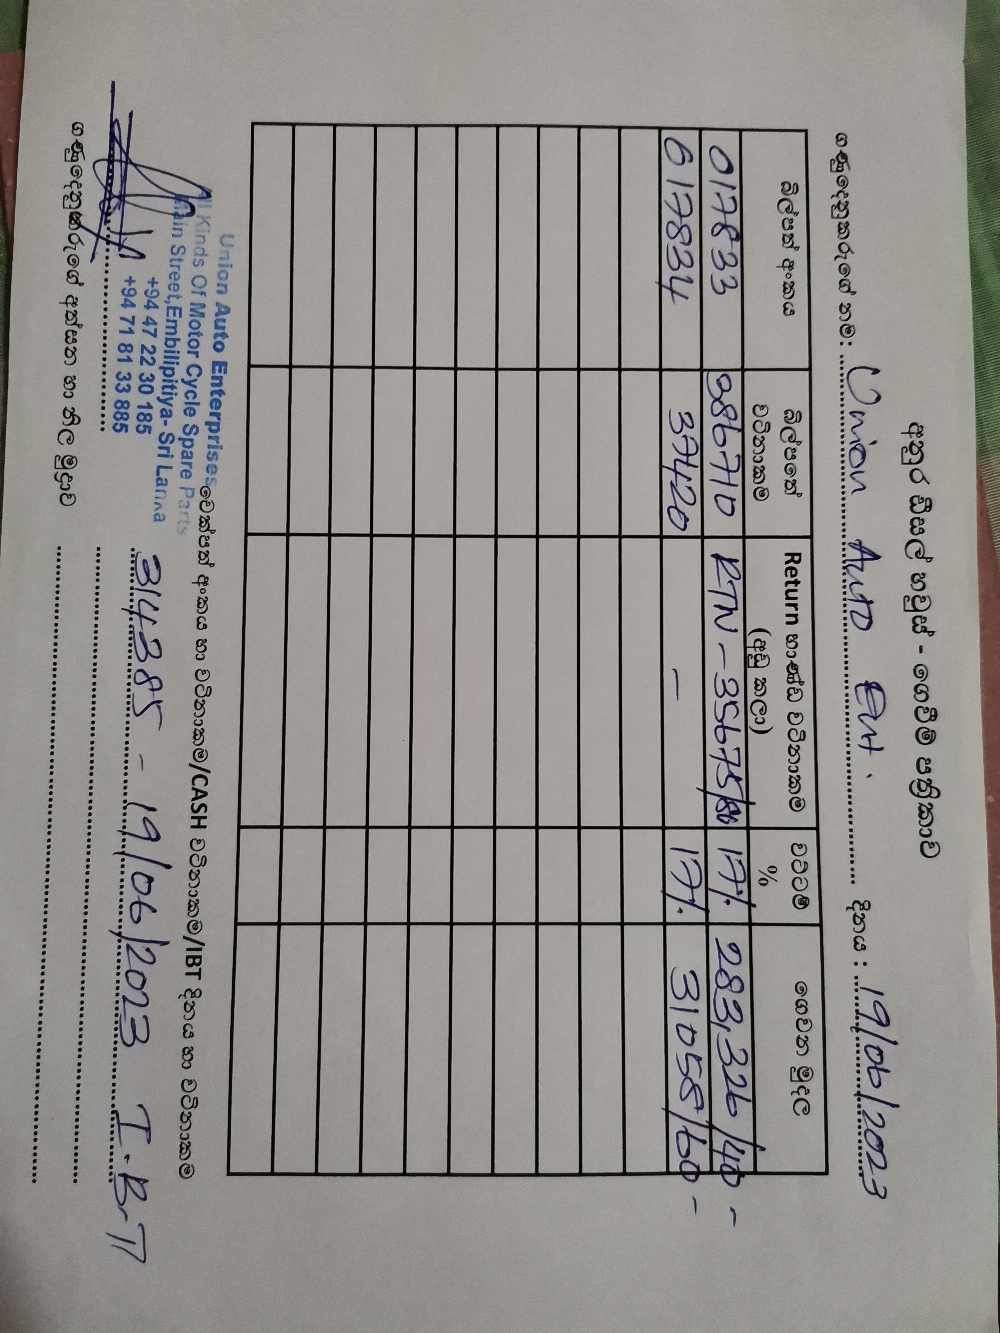 අනුර ඩීසල් හවුස් - ගෙවීම් පත්‍රිකාව
ගණුදෙනුකරුගේ නම: Union Auto Ent. දිනය : 19/06/2023
බිල්පත් අංකය බිල්පතේ වටිනාකම Return භාණ්ඩ වටිනාකම (අඩු කලා) වට්ටම් % ගෙවන මුදල
017833 386710 RTN - 35675/= 17% 283,326/40 -
617834 37420 - 17% 31058/60 -
චෙක්පත් අංකය හා වටිනාකම/CASH වටිනාකම/IBT දිනය හා වටිනාකම
314385 - 19/06/2023 I.B.T
Union Auto Enterprises
All Kinds Of Motor Cycle Spare Parts
Main Street,Embilipitiya- Sri Lanka
+94 47 22 30 185
+94 71 81 33 885
ගණුදෙනුකරුගේ අත්සන හා නිල මුද්‍රාව